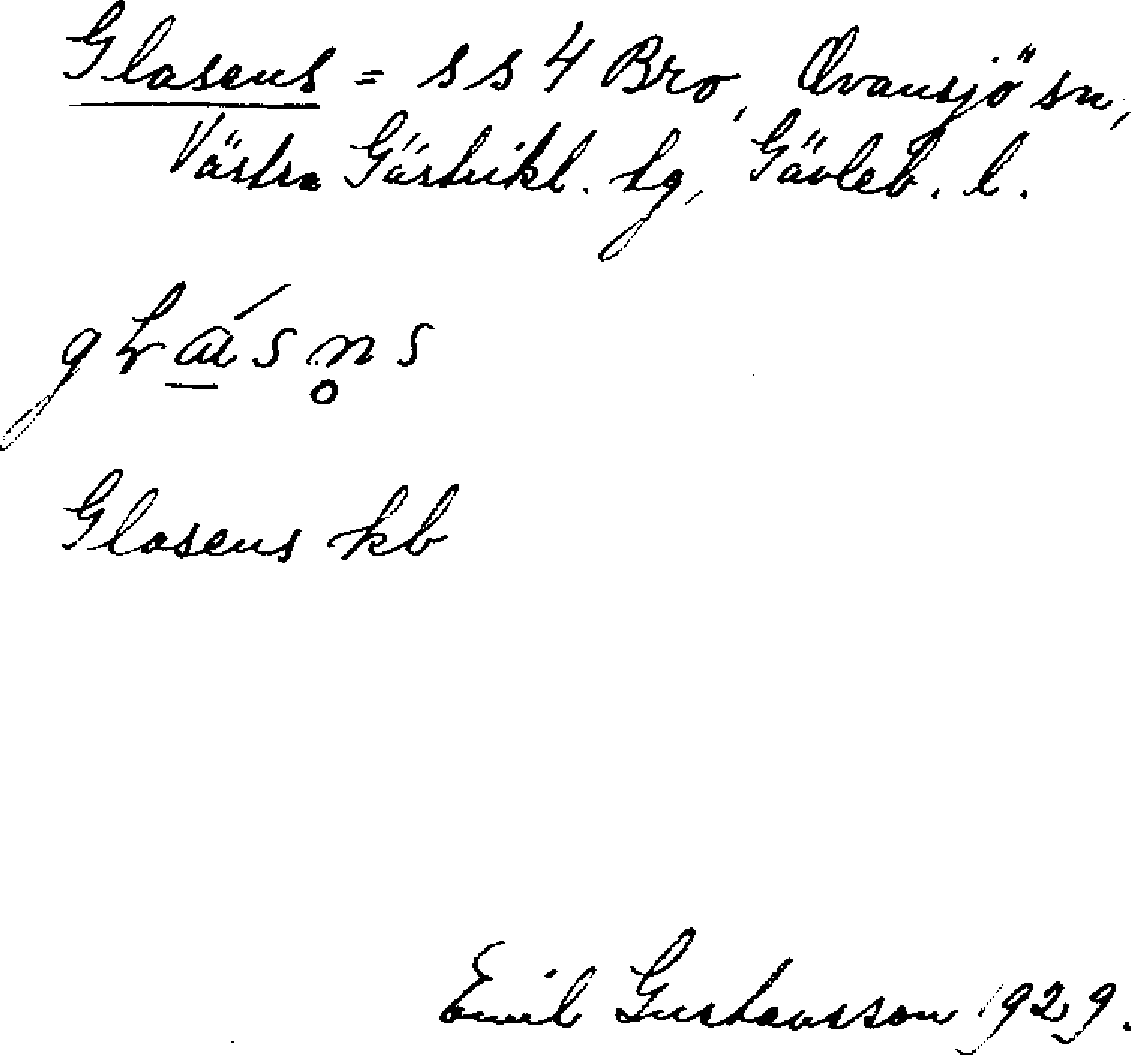 Glasens = s s 4 Bro, Ovansjö sn,
Västra Gästrikl. tg, Gävleb. l.
gLa̲´sn̥s
Glasens kb
Emil Gustavsson 1929.